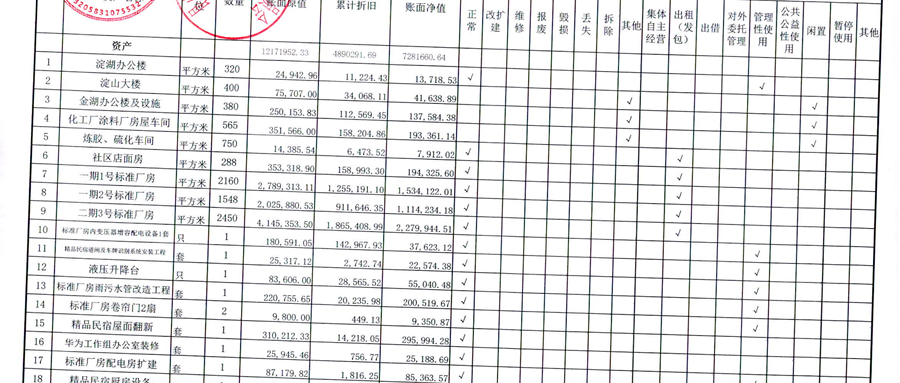 数量 账面原值 累计折旧 账面净值 正常 改扩建 维修 报废 毁损 丢失 拆除 其他 集体自主经营 出租（发包） 出借 对外委托管理 管理性使用 公共公益性使用 闲置 暂停使用 其他
资产 12171952.33 4890291.69 7281660.64
1 淀湖办公楼 平方米 320 24,942.96 11,224.43 13,718.53 √ √
2 淀山大楼 平方米 400 75,707.00 34,068.11 41,638.89 √ √
3 金湖办公楼及设施 平方米 380 250,153.83 112,569.45 137,584.38 √ √
4 化工厂涂料厂房屋车间 平方米 565 351,566.00 158,204.86 193,361.14 √ √
5 炼胶、硫化车间 平方米 750 14,385.54 6,473.52 7,912.02 √ √
6 社区店面房 平方米 288 353,318.90 158,993.30 194,325.60 √ √
7 一期1号标准厂房 平方米 2160 2,789,313.11 1,255,191.10 1,534,122.01 √ √
8 一期2号标准厂房 平方米 1548 2,025,880.53 911,646.35 1,114,234.18 √ √
9 二期3号标准厂房 平方米 2450 4,145,353.50 1,865,408.99 2,279,944.51 √ √
10 标准厂房内变压器增容配电设备1套 只 1 180,591.05 142,967.93 37,623.12 √ √
11 精品民宿道闸及车牌识别系统安装工程 套 1 25,317.12 2,742.74 22,574.38 √ √
12 液压升降台 只 1 83,606.00 28,565.52 55,040.48 √ √
13 标准厂房雨污水管改造工程 套 1 220,755.65 20,235.98 200,519.67 √ √
14 标准厂房卷帘门2扇 套 2 9,800.00 449.13 9,350.87 √ √
15 精品民宿屋面翻新 套 1 310,212.33 14,218.05 295,994.28 √
16 华为工作组办公室装修 套 1 25,945.46 756.77 25,188.69 √
17 标准厂房配电房扩建 套 1 87,179.82 1,816.25 85,363.57 √
18 精品民宿厨房设备 套 1